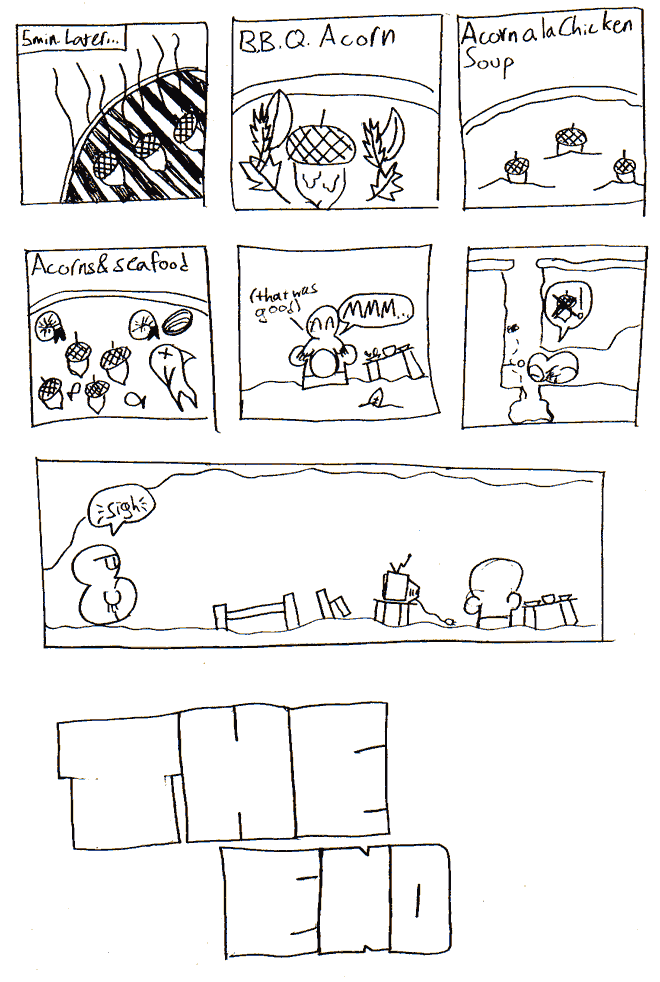 5min Later...
B.B.Q. Acorn
Acorn a la Chicken
Soup
Acorns & seafood
(that was
good)
MMM...
!
sigh